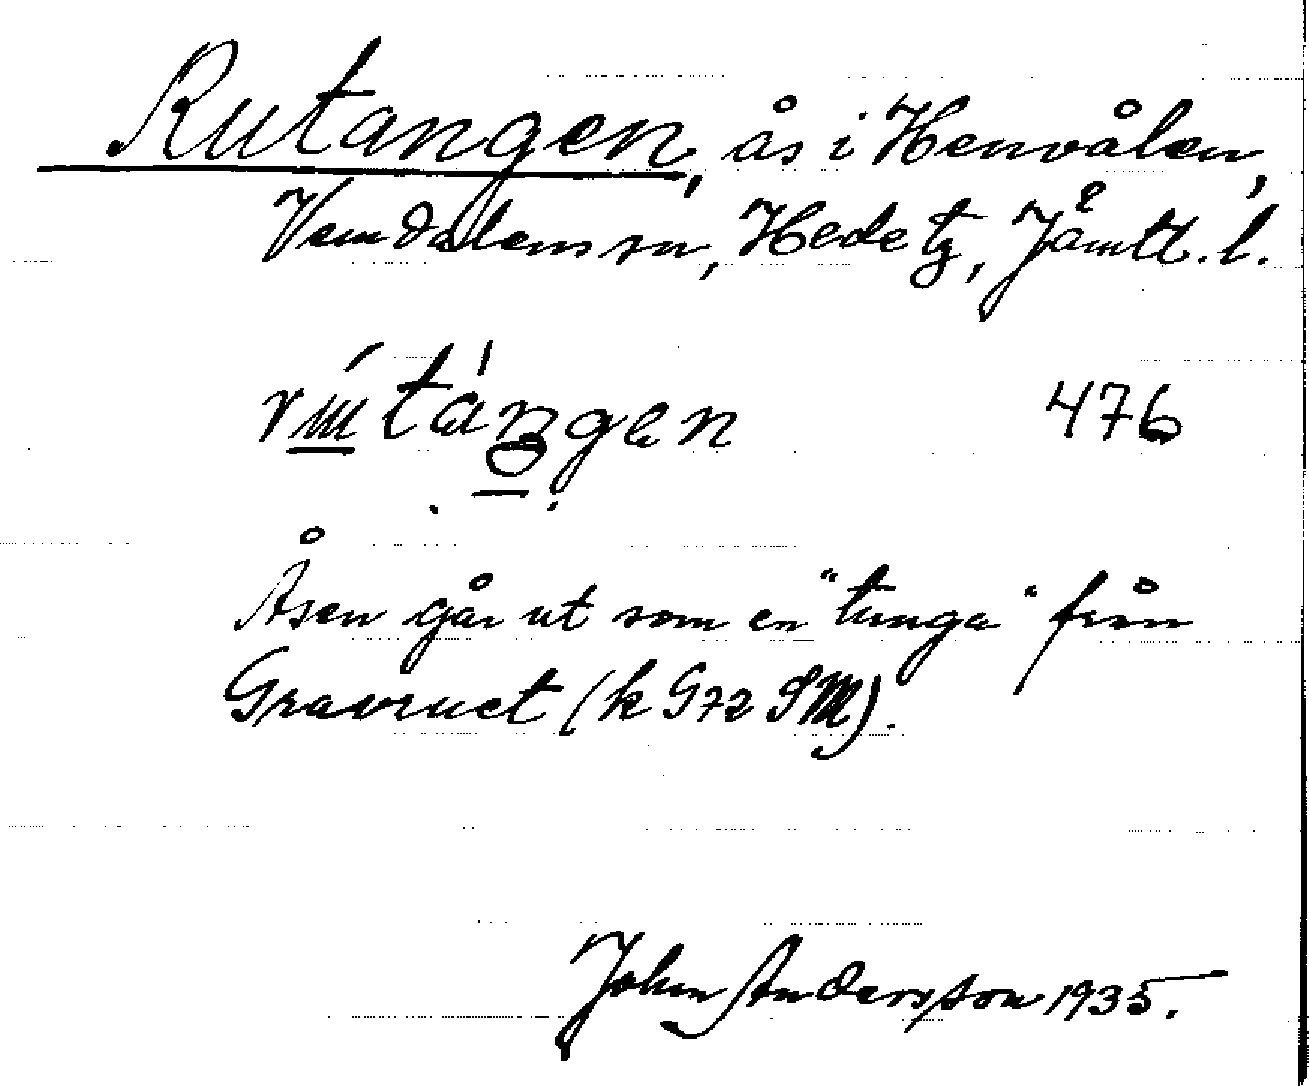 Rutangen, ås i Henvålen,
Vemdalens sn, Hede tg, Jämtl. l.
rutangen 476
Åsen går ut som en "tunga" från
Gravruet (k G72 SM).
John Andersson 1935.